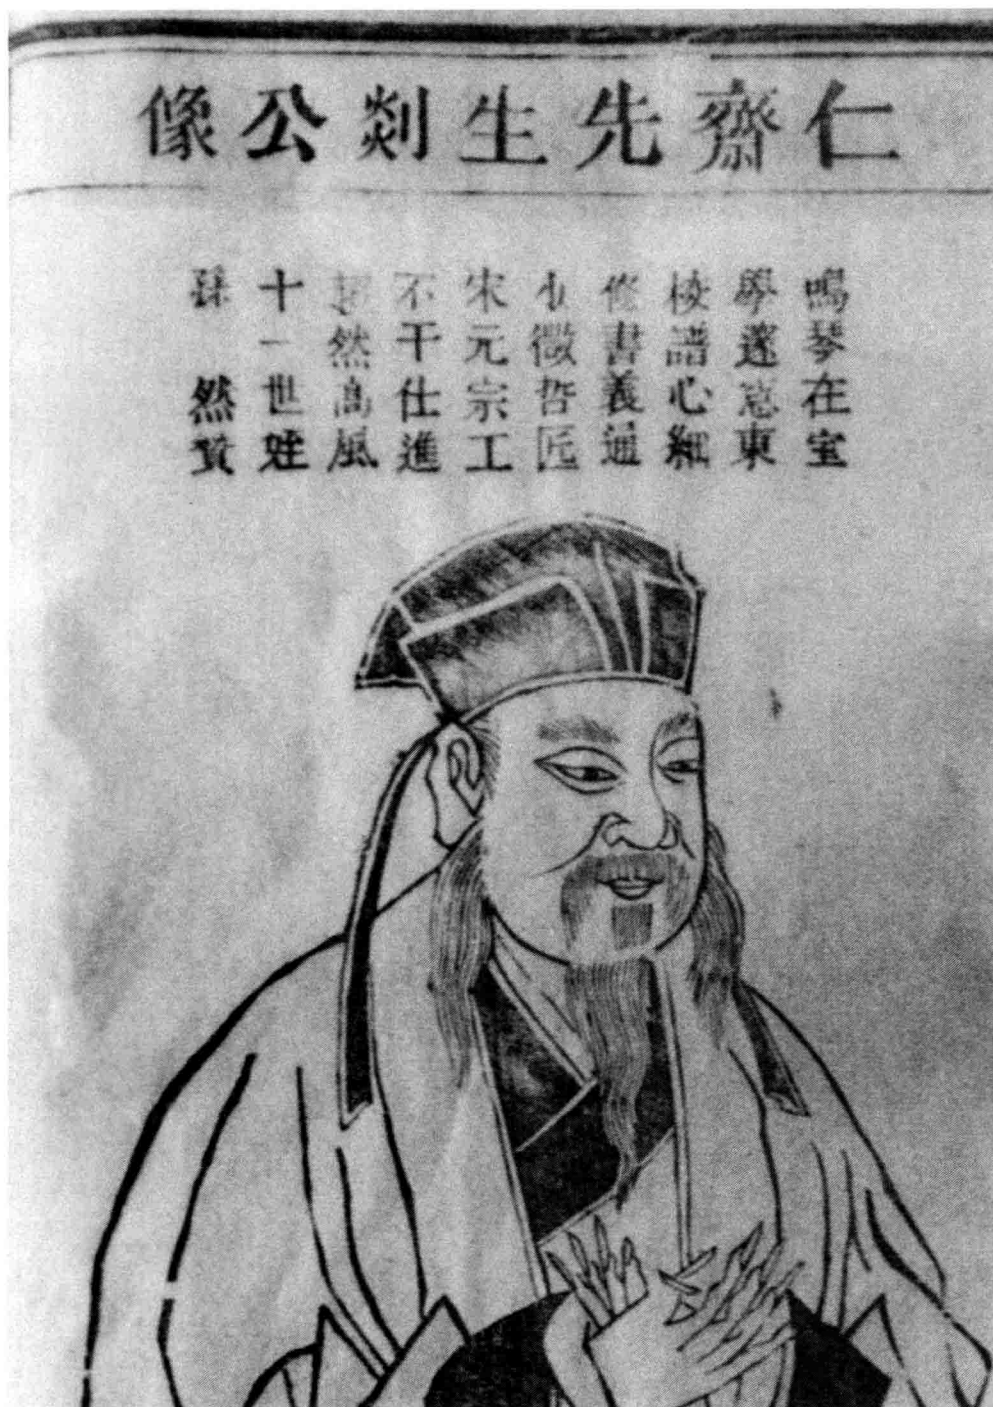 仁齋先生剡公像
鳴琴在宝
學邃窓東
棱譜心細
修書義通
微哲匠
宋元宗工
不干仕進
然高風
十一世姪
孫 然贊